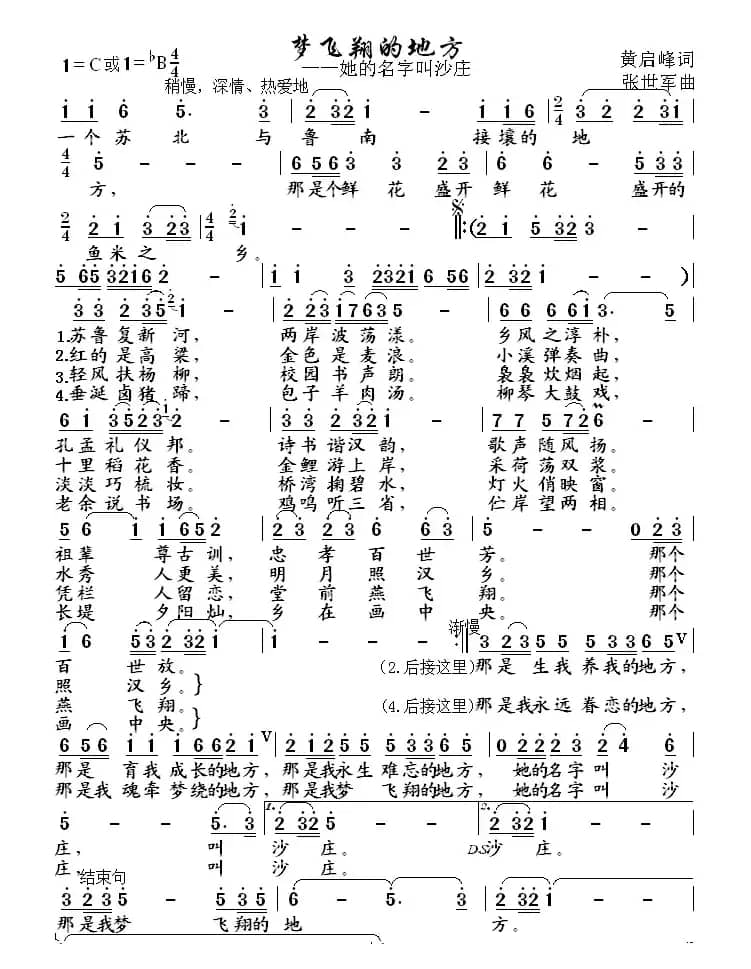 梦飞翔的地方
1=C或1=♭B 4/4
——她的名字叫沙庄
黄启峰词
稍慢，深情、热爱地
张世军曲
一个苏北与鲁南接壤的地
方，那是个鲜花盛开鲜花盛开的
鱼米之乡。
1.苏鲁复新河，两岸波荡漾。乡风之淳朴，
2.红的是高粱，金色是麦浪。小溪弹奏曲，
3.轻风扶杨柳，校园书声朗。袅袅炊烟起，
4.垂涎卤猪蹄，包子羊肉汤。柳琴大鼓戏，
孔孟礼仪邦。诗书谐汉韵，歌声随风扬。
十里稻花香。金鲤游上岸，采荷荡双浆。
淡淡巧梳妆。桥湾掬碧水，灯火俏映窗。
老余说书场。鸡鸣听三省，伫岸望两相。
祖辈尊古训，忠孝百世芳。那个
水秀人更美，明月照汉乡。那个
凭栏人留恋，堂前燕飞翔。那个
长堤夕阳灿，乡在画中央。那个
渐慢
百世放。（2.后接这里）那是生我养我的地方，
照汉乡。
燕飞翔。（4.后接这里）那是我永远眷恋的地方，
画中央。
那是育我成长的地方，那是我永生难忘的地方，她的名字叫沙
那是我魂牵梦绕的地方，那是我梦飞翔的地方，她的名字叫沙
1.
2.
庄，叫沙庄。D.S沙庄。
庄，叫沙庄。
结束句
那是我梦飞翔的地方。